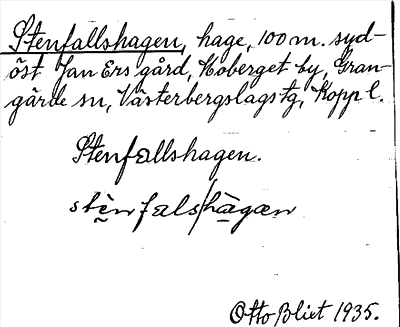 Stenfallshagen, hage, 100 m. syd-
öst Jan Ers gård, Hoberget by, Gran-
gärde sn, Västerbergslags tg, Kopp l.
Stenfallshagen.
stè̱nfals/hà̱gæn
Otto Blixt 1935.